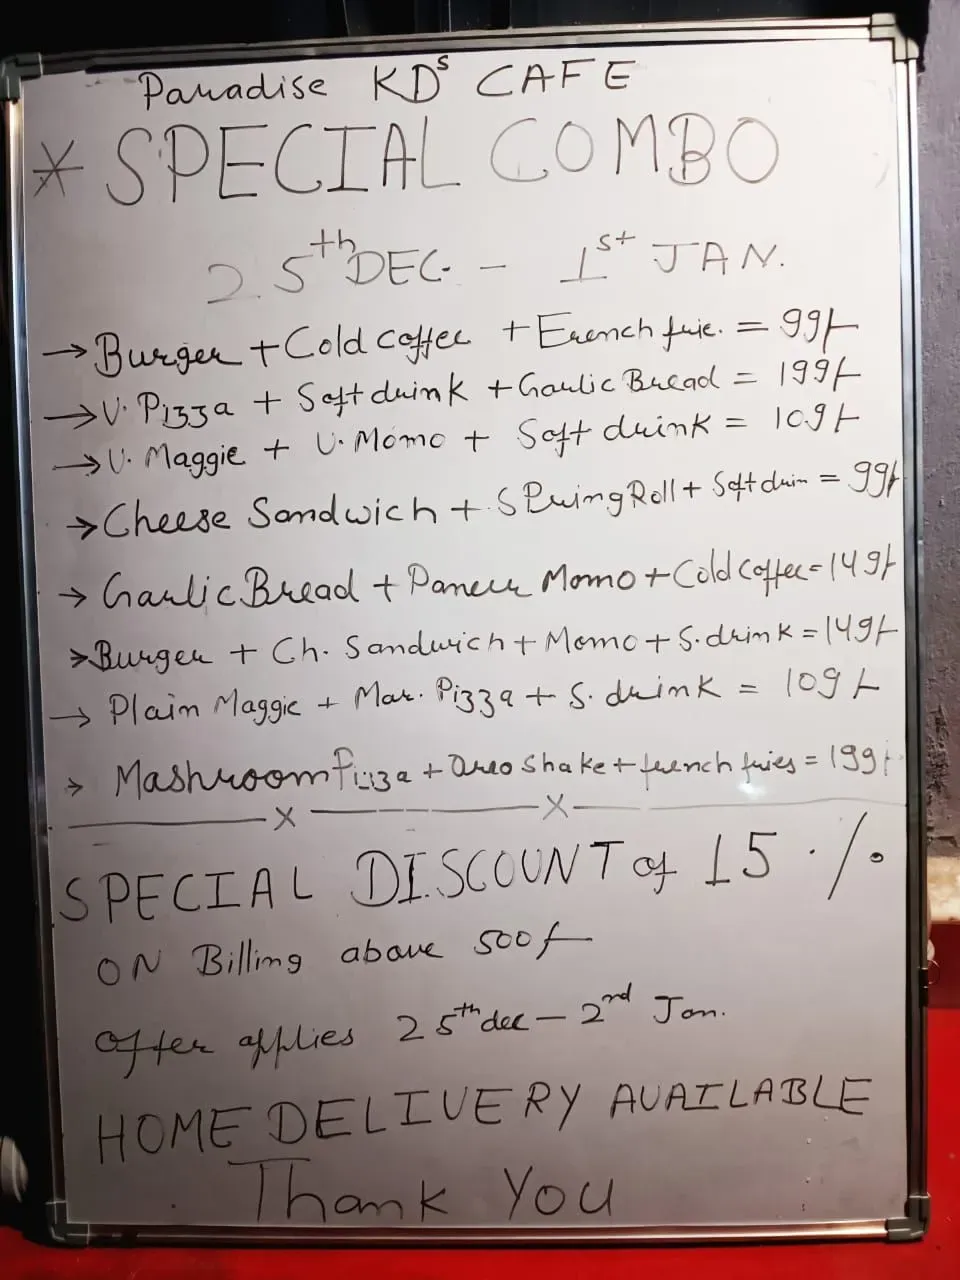 Paradise KDs CAFE
* SPECIAL COMBO
25th DEC. - 1st JAN.
→ Burger + Cold coffee + French frie. = 99/-
→ V. Pizza + Soft drink + Garlic Bread = 199/-
→ V. Maggie + V. Momo + Soft drink = 109/-
→ Cheese Sandwich + SPring Roll + Soft drin = 99/-
→ Garlic Bread + Paneer Momo + Cold coffee = 149/-
→ Burger + Ch. Sandwich + Momo + S. drink = 149/-
→ Plain Maggie + Mar. Pizza + S. drink = 109/-
→ Mashroom Pizza + Oreo Shake + french fries = 199/-
x x
SPECIAL DISCOUNT of 15 %
ON Billing above 500/-
Offer applies 25th dec - 2nd Jan.
HOME DELIVERY AVAILABLE
Thank You